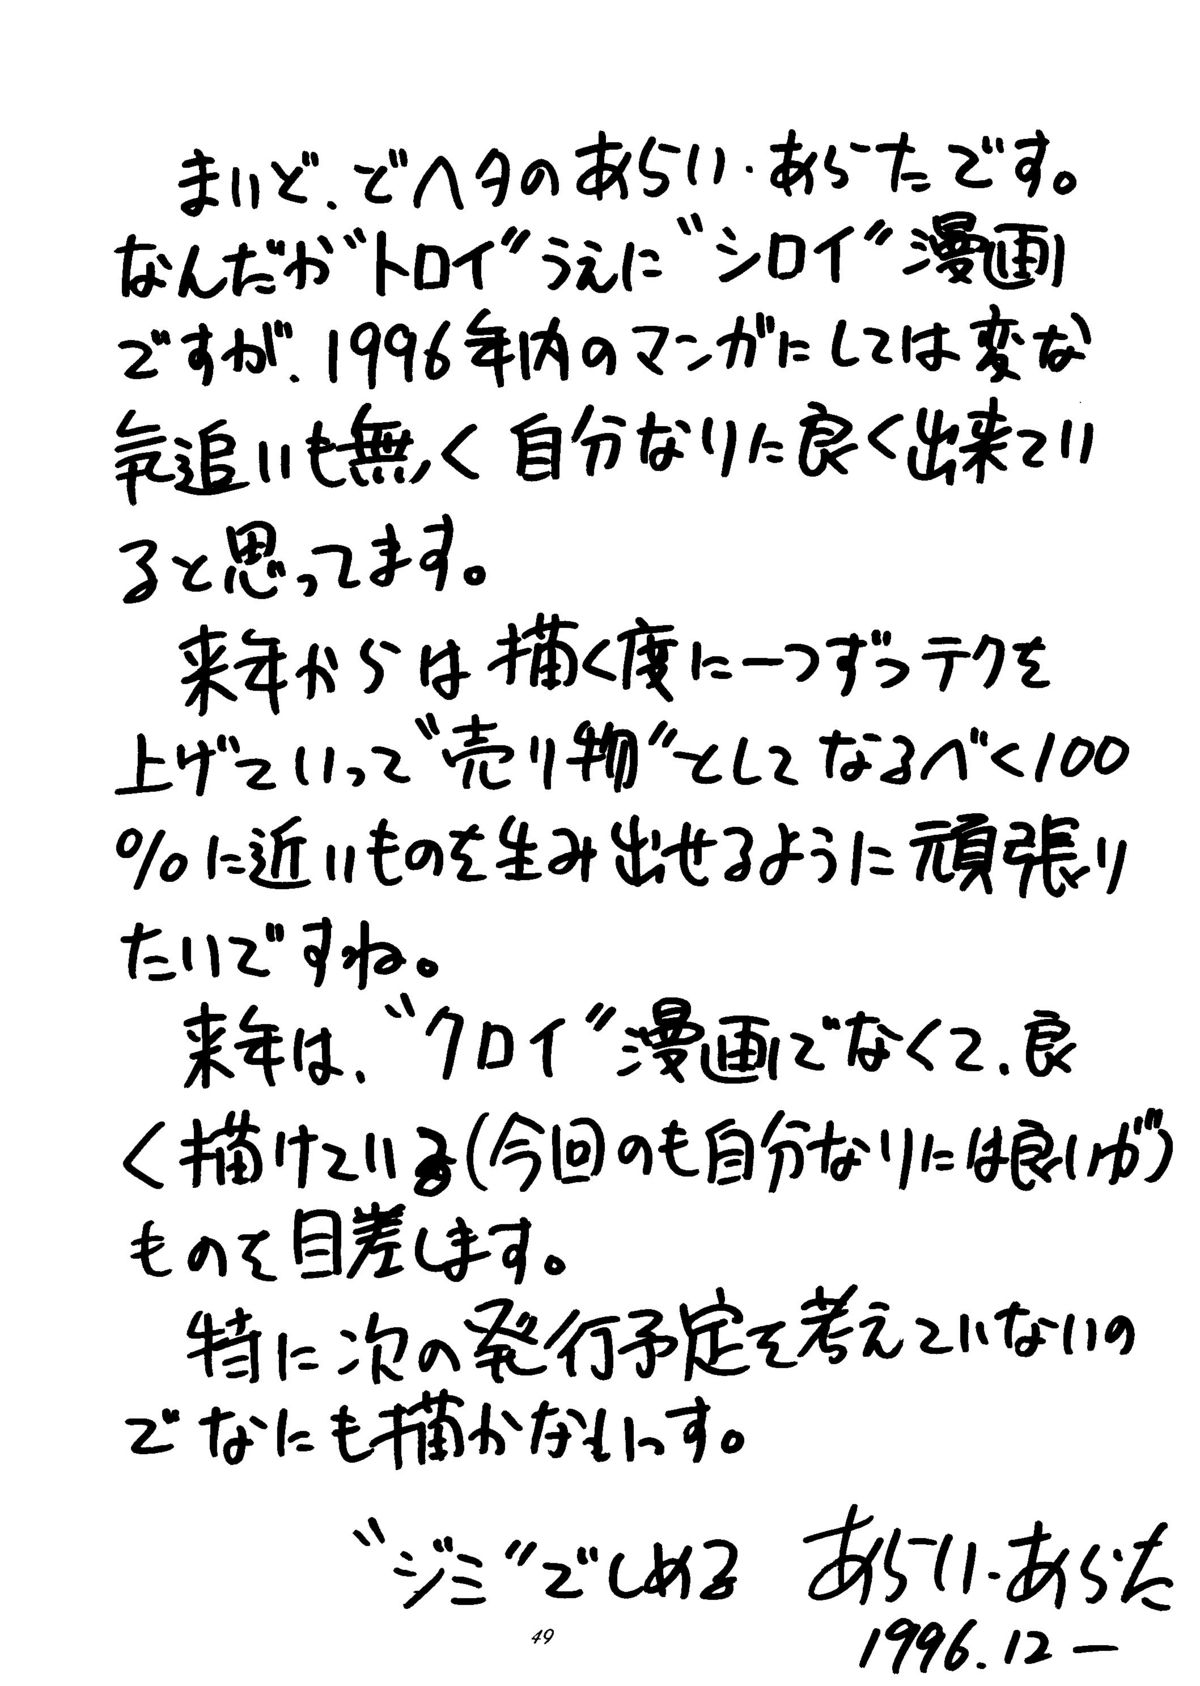 まいど、どヘタのあらい・あらたです。
なんだか"トロイ"うえに"シロイ"漫画
ですが、1996年内のマンガにしては変な
気追いも無く自分なりに良く出来てい
ると思ってます。
来年からは描く度に一つずつテクを
上げていって"売り物"としてなるべく100
%に近いものを生み出せるように頑張り
たいですね。
来年は、"クロイ"漫画でなくて、良
く描けている(今回のも自分なりには良いが)
ものを目差します。
特に次の発行予定を考えていないの
でなにも描かないっす。
"ジミ"でしめる あらい・あらた
1996.12 ー
49